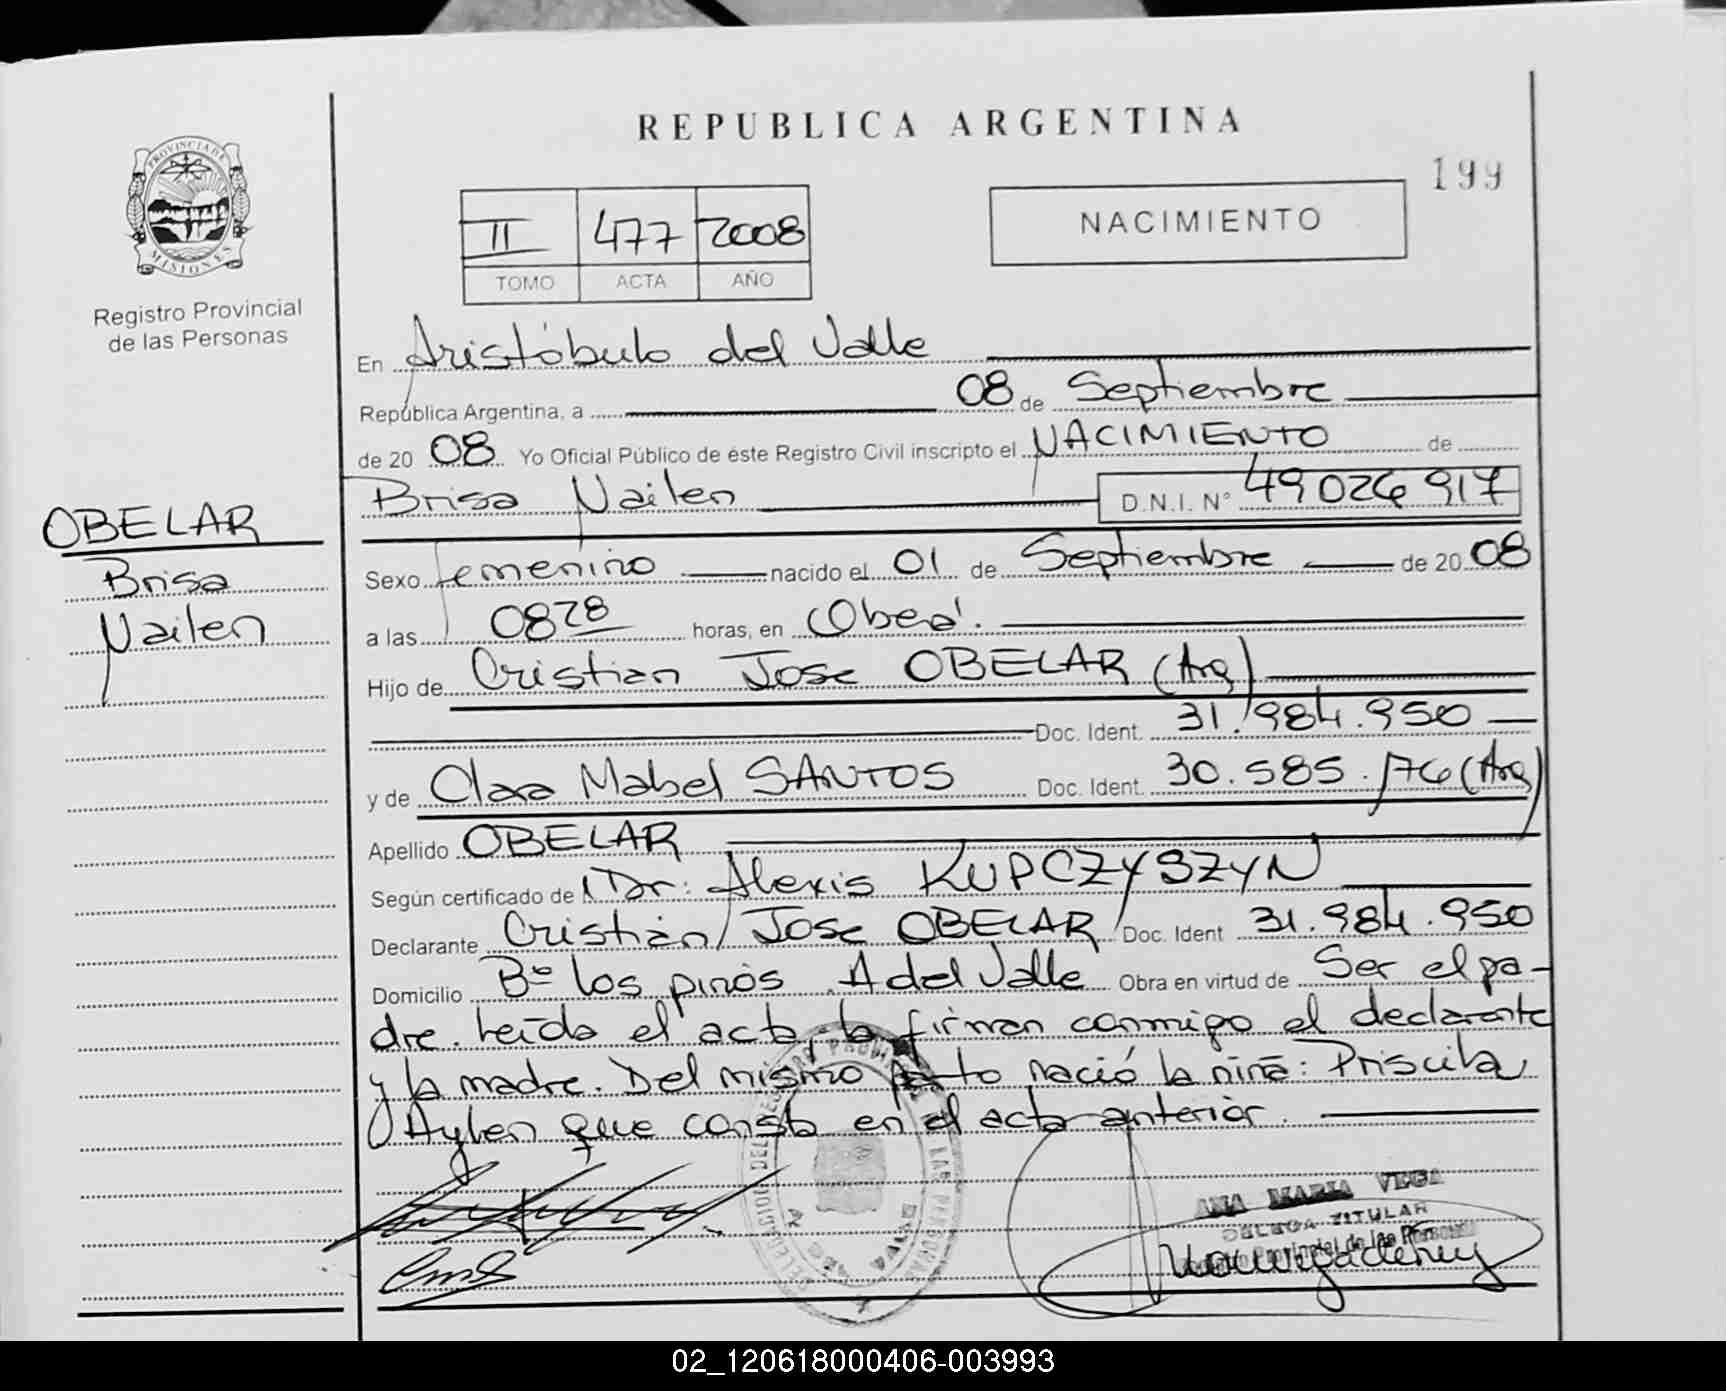 REPUBLICA ARGENTINA
199
PROVINCIA DE
MISIONES
Registro Provincial
de las Personas
II 477 2008
TOMO ACTA AÑO
NACIMIENTO
En Aristóbulo del Valle
República Argentina, a 08 de Septiembre
de 20 08 Yo Oficial Público de éste Registro Civil inscripto el NACIMIENTO de
Brisa Nailen D.N.I. N° 49026917
OBELAR
Brisa
Nailen
Sexo femenino nacido el 01 de Septiembre de 20 08
a las 0828 horas, en Oberá.
Hijo de Cristian Jose OBELAR (Arg)
Doc. Ident. 31.984.950
y de Clara Mabel SANTOS Doc. Ident. 30.585.176 (Arg)
Apellido OBELAR
Según certificado de Dr: Alexis KUPCZYSZYN
Declarante Cristián Jose OBELAR Doc. Ident 31.984.950
Domicilio B° los pinos A del Valle Obra en virtud de Ser el pa-
dre. leída el acta, la firman conmigo el declarante
y la madre. Del mismo parto nació la niña: Priscila
Aylen que consta en el acta anterior.
ANA MARIA VEGA
DELEGA TITULAR
Provincial de las Personas
02_120618000406-003993